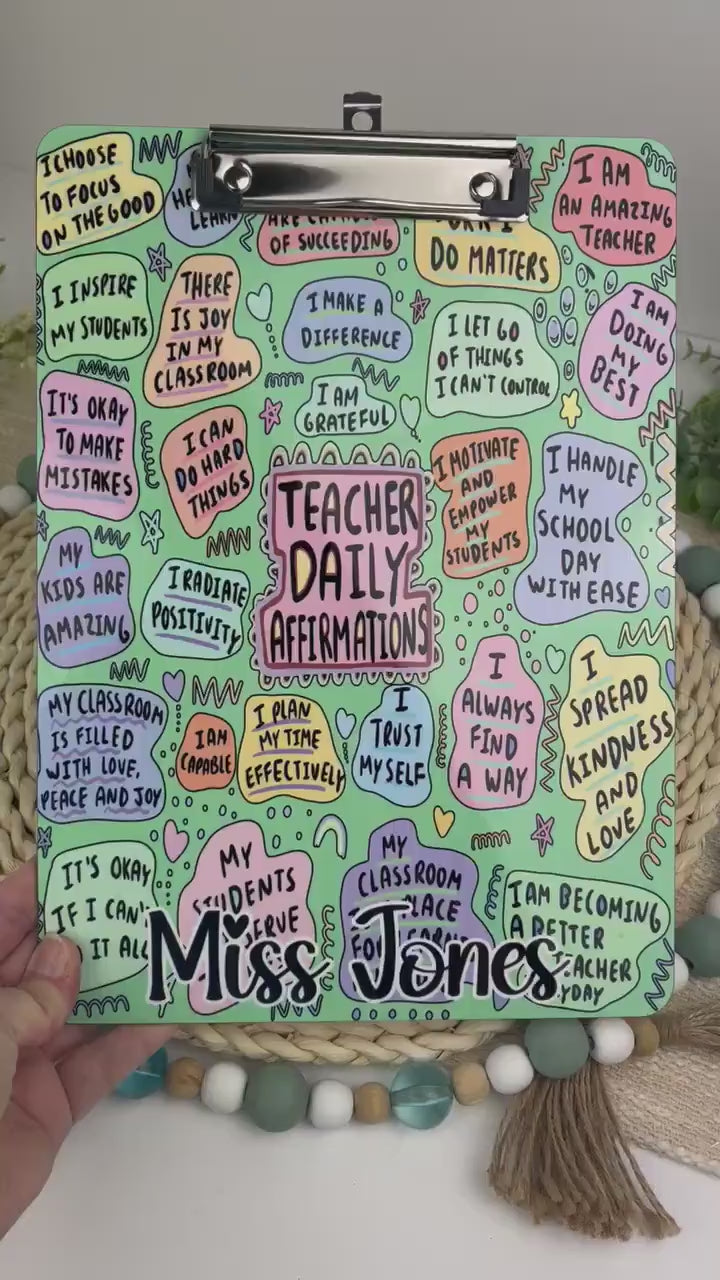 I CHOOSE
TO FOCUS
ON THE GOOD
LEARN
OF SUCCEEDING
DO MATTERS
I AM
AN AMAZING
TEACHER
I INSPIRE
MY STUDENTS
THERE
IS JOY
IN MY
CLASSROOM
I MAKE A
DIFFERENCE
I LET GO
OF THINGS
I CAN'T CONTROL
I AM
DOING
MY
BEST
IT'S OKAY
TO MAKE
MISTAKES
I CAN
DO HARD
THINGS
I AM
GRATEFUL
I MOTIVATE
AND
EMPOWER
MY
STUDENTS
I HANDLE
MY
SCHOOL
DAY
WITH EASE
TEACHER
DAILY
AFFIRMATIONS
MY
KIDS ARE
AMAZING
I RADIATE
POSITIVITY
MY CLASSROOM
IS FILLED
WITH LOVE,
PEACE AND JOY
I AM
CAPABLE
I PLAN
MY TIME
EFFECTIVELY
I
TRUST
MYSELF
I
ALWAYS
FIND
A WAY
I
SPREAD
KINDNESS
AND
LOVE
IT'S OKAY
IF I CAN'T
IT ALL
MY
STUDENTS
MY
CLASSROOM
PLACE
I AM BECOMING
A BETTER
TEACHER
Miss Jones